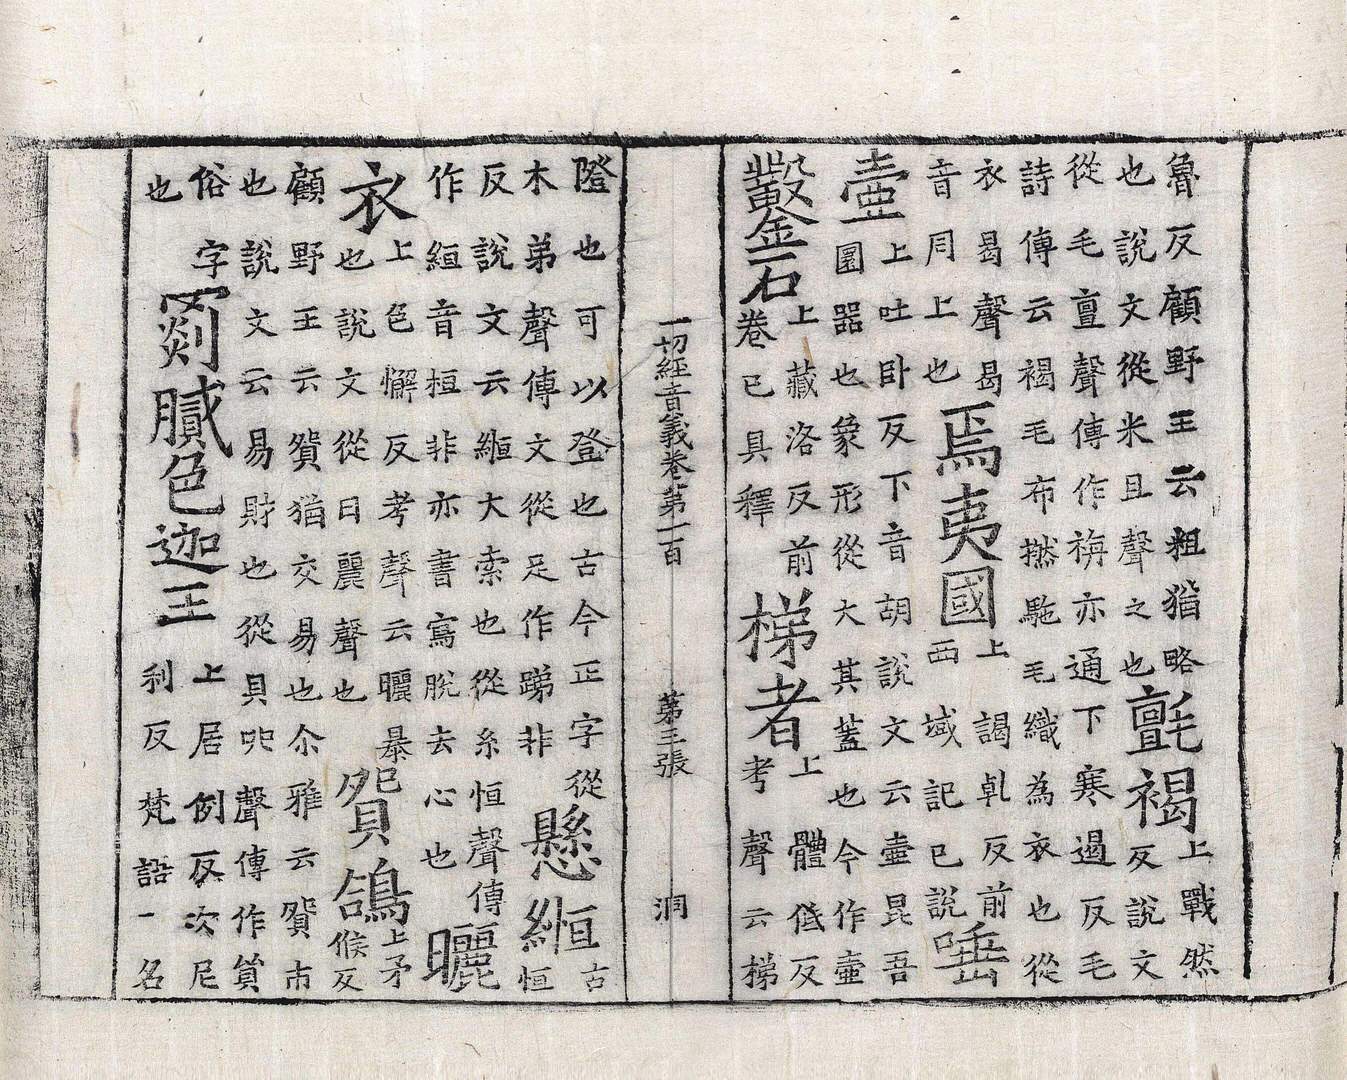 魯反顧野王云粗猶略
也說文從米且聲之也
氈褐
上戰然
反說文
從毛亶聲傳作㫋亦通下寒遏反毛
詩傳云褐毛布撚駞毛織為衣也從
衣曷聲曷
音同上也
焉夷國
上謁乹反前
西域記已說
唾
壺
上吐卧反下音胡說文云壷昆吾
圜器也象形從大其蓋也今作壷
鑿石
上藏洛反前
卷已具釋
梯者
上體低反
考聲云梯
一切經音義卷第一百 第三張 洞
隥也可以登也古今正字從
木弟聲傳文從足作䠀非
懸縆
古
恒
反說文云縆大索也從糸恒聲傳
作絙音桓非亦書寫脫去心也
曬
衣
上色懈反考聲云曬暴
也說文從日麗聲也
貿鴿
上矛
候反
顧野王云貿猶交易也尒雅云貿市
也說文云易財也從貝戼聲傳作貿
俗字
也
罽膩色迦王
上居例反次尼
利反梵語一名